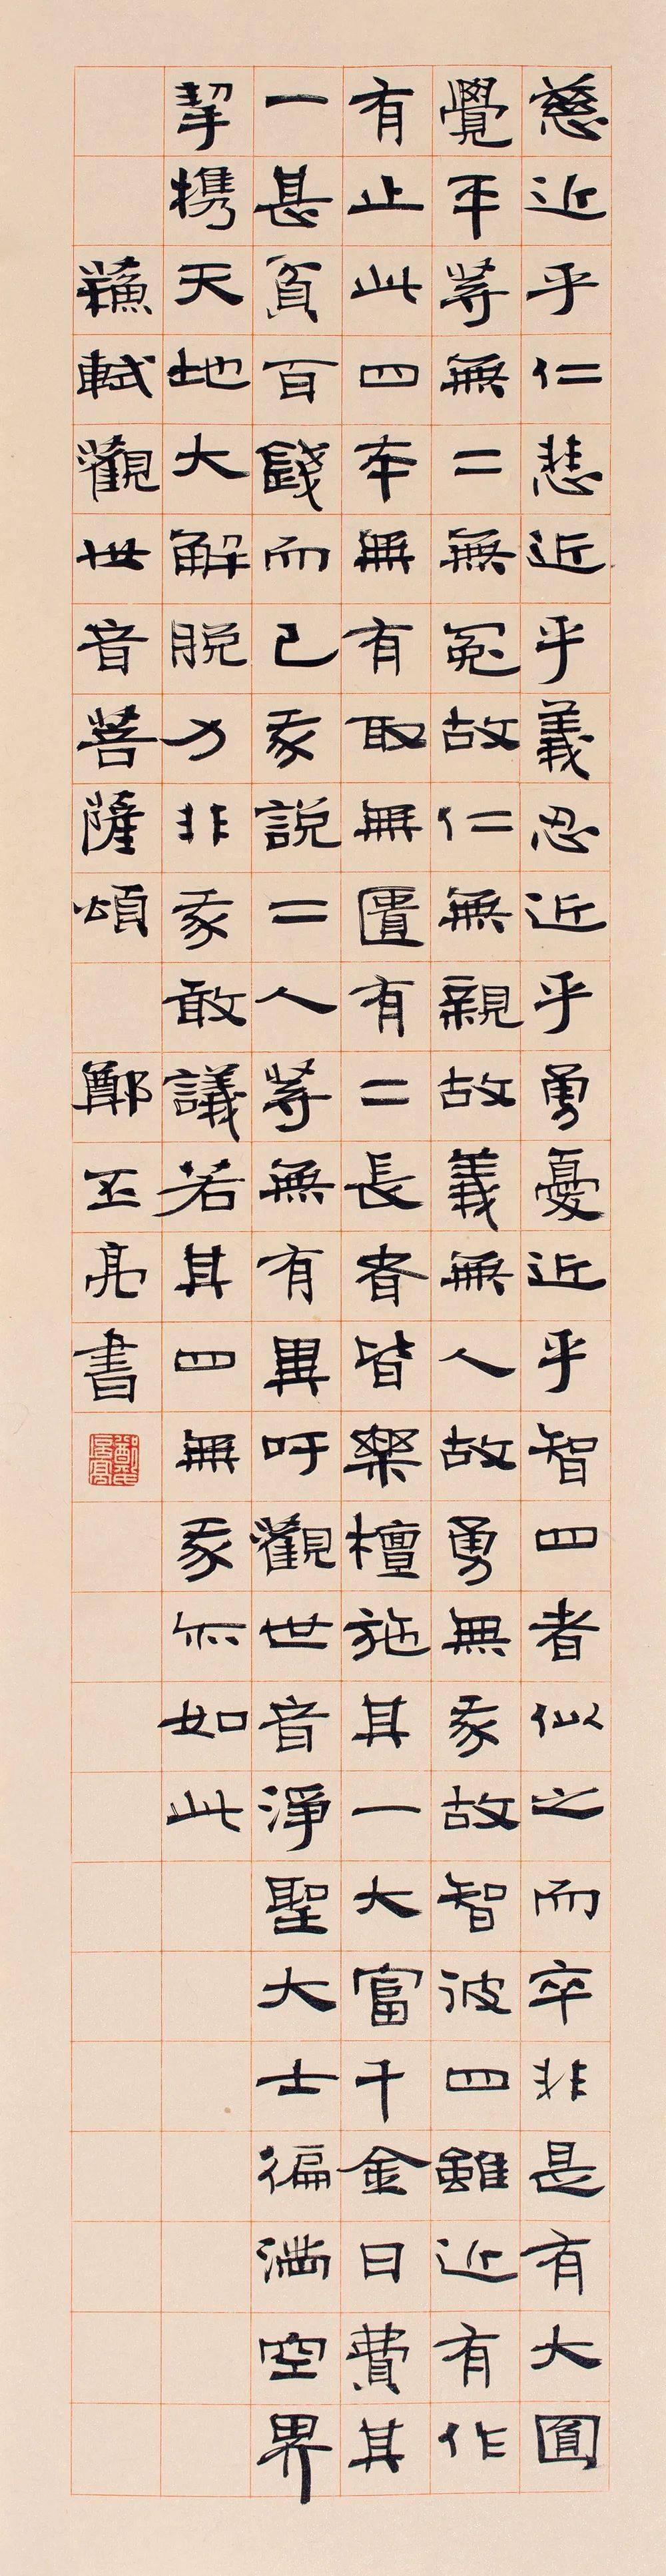 慈近乎仁悲近乎義忍近乎勇憂近乎智四者似之而卒非是有大圓
覺平等無二無冤故仁無親故義無人故勇無我故智彼四雖近有作
有止此四本無有取無匱有二長者皆樂檀施其一大富千金日費其
一甚貧百錢而已我說二人等無有異吁觀世音淨聖大士徧滿空界
挈攜天地大解脫力非我敢議若其四無我亦如此
蘇軾觀世音菩薩頌 鄭玉亮書